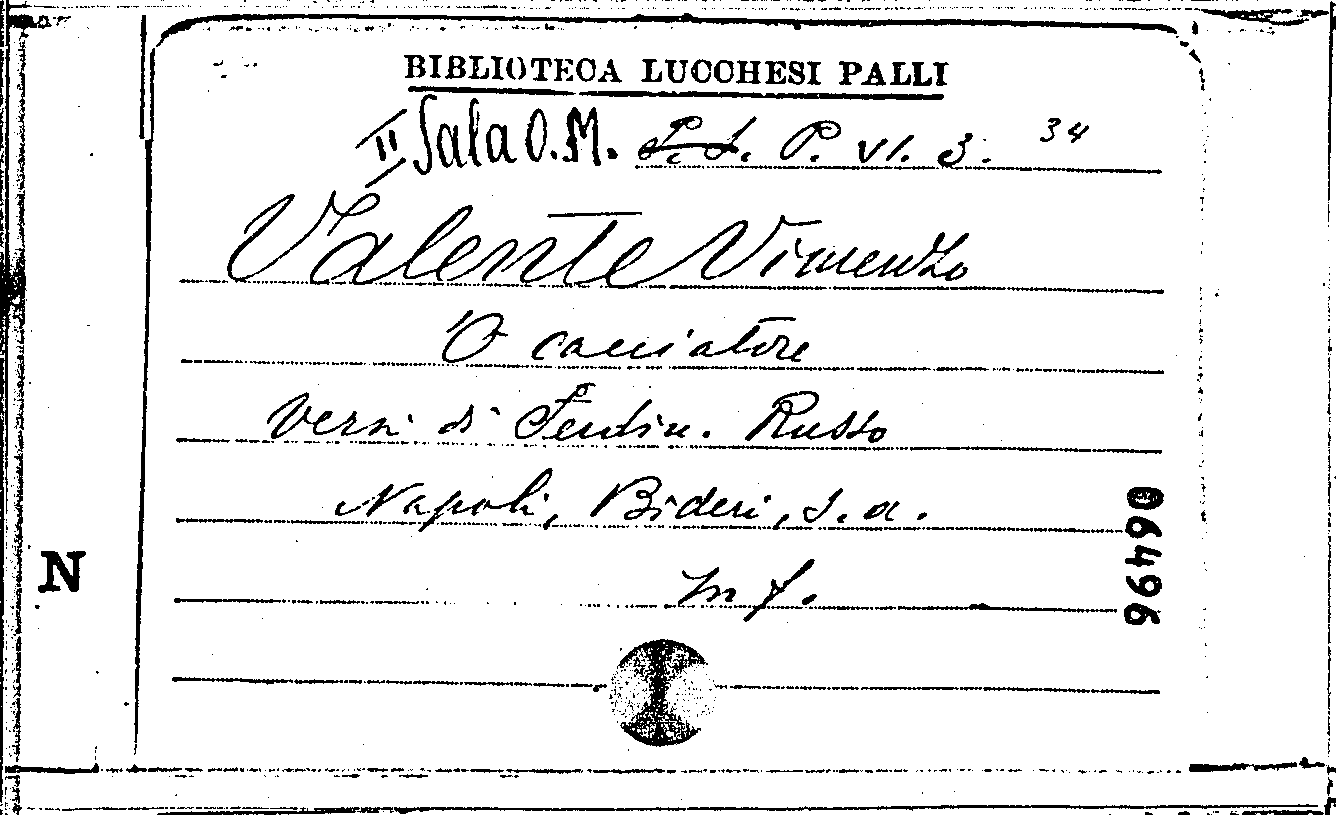 BIBLIOTECA LUCCHESI PALLI
II Sala O.M. P. L. P. VI. 3. 34
Valente Vincenzo
'O cacciatore
Versi di Ferdin. Russo
Napoli, Bideri, s. a.
m f.
06496
N